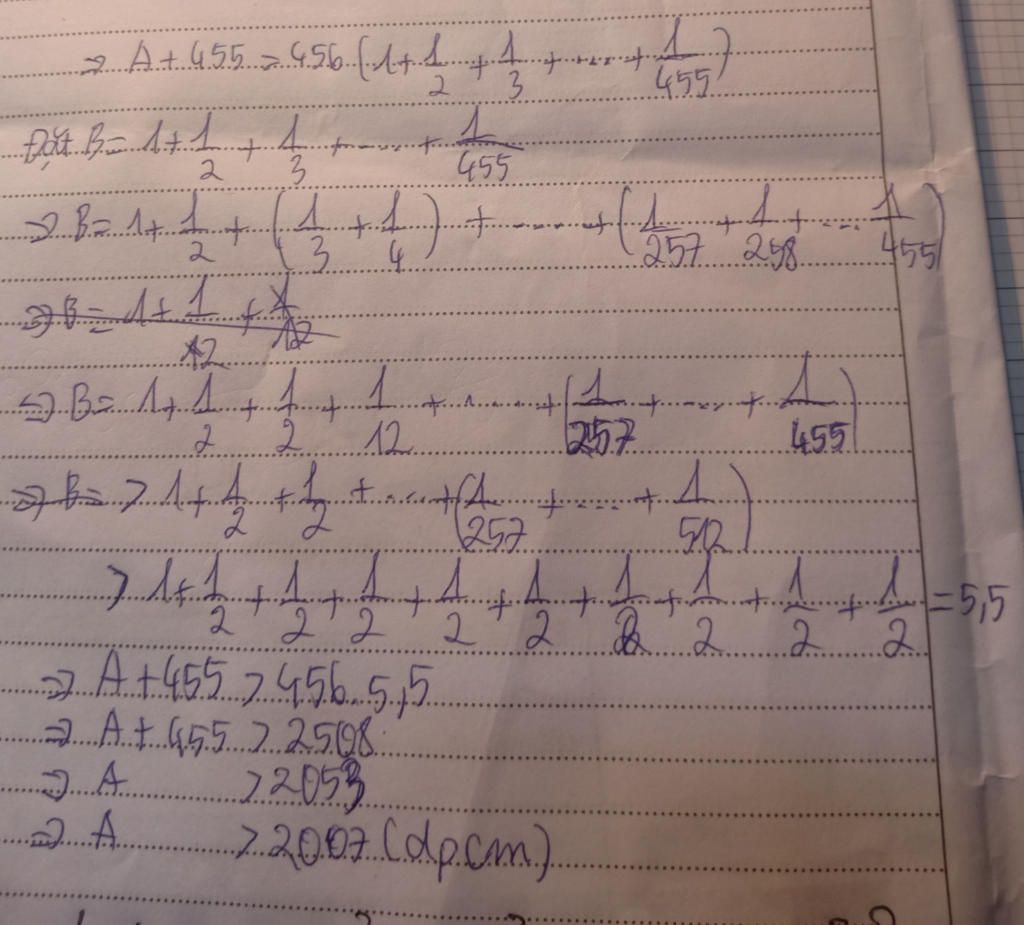 => A + 455 = 456 (1 + 1/2 + 1/3 + .... + 1/455)
Đặt B = 1 + 1/2 + 1/3 + .... + 1/455
=> B = 1 + 1/2 + (1/3 + 1/4) + ..... + (1/257 + 1/258 + ... 1/455)
=> B = 1 + 1/2 + 1/12
=> B = 1 + 1/2 + 1/2 + 1/12 + ..... + (1/257 + .... + 1/455)
=> B = > 1 + 1/2 + 1/2 + .... + (1/257 + .... + 1/512)
> 1 + 1/2 + 1/2 + 1/2 + 1/2 + 1/2 + 1/2 + 1/2 + 1/2 + 1/2 = 5,5
=> A + 455 > 456.5,5
=> A + 455 > 2508
=> A > 2053
=> A > 2007 (dpcm)